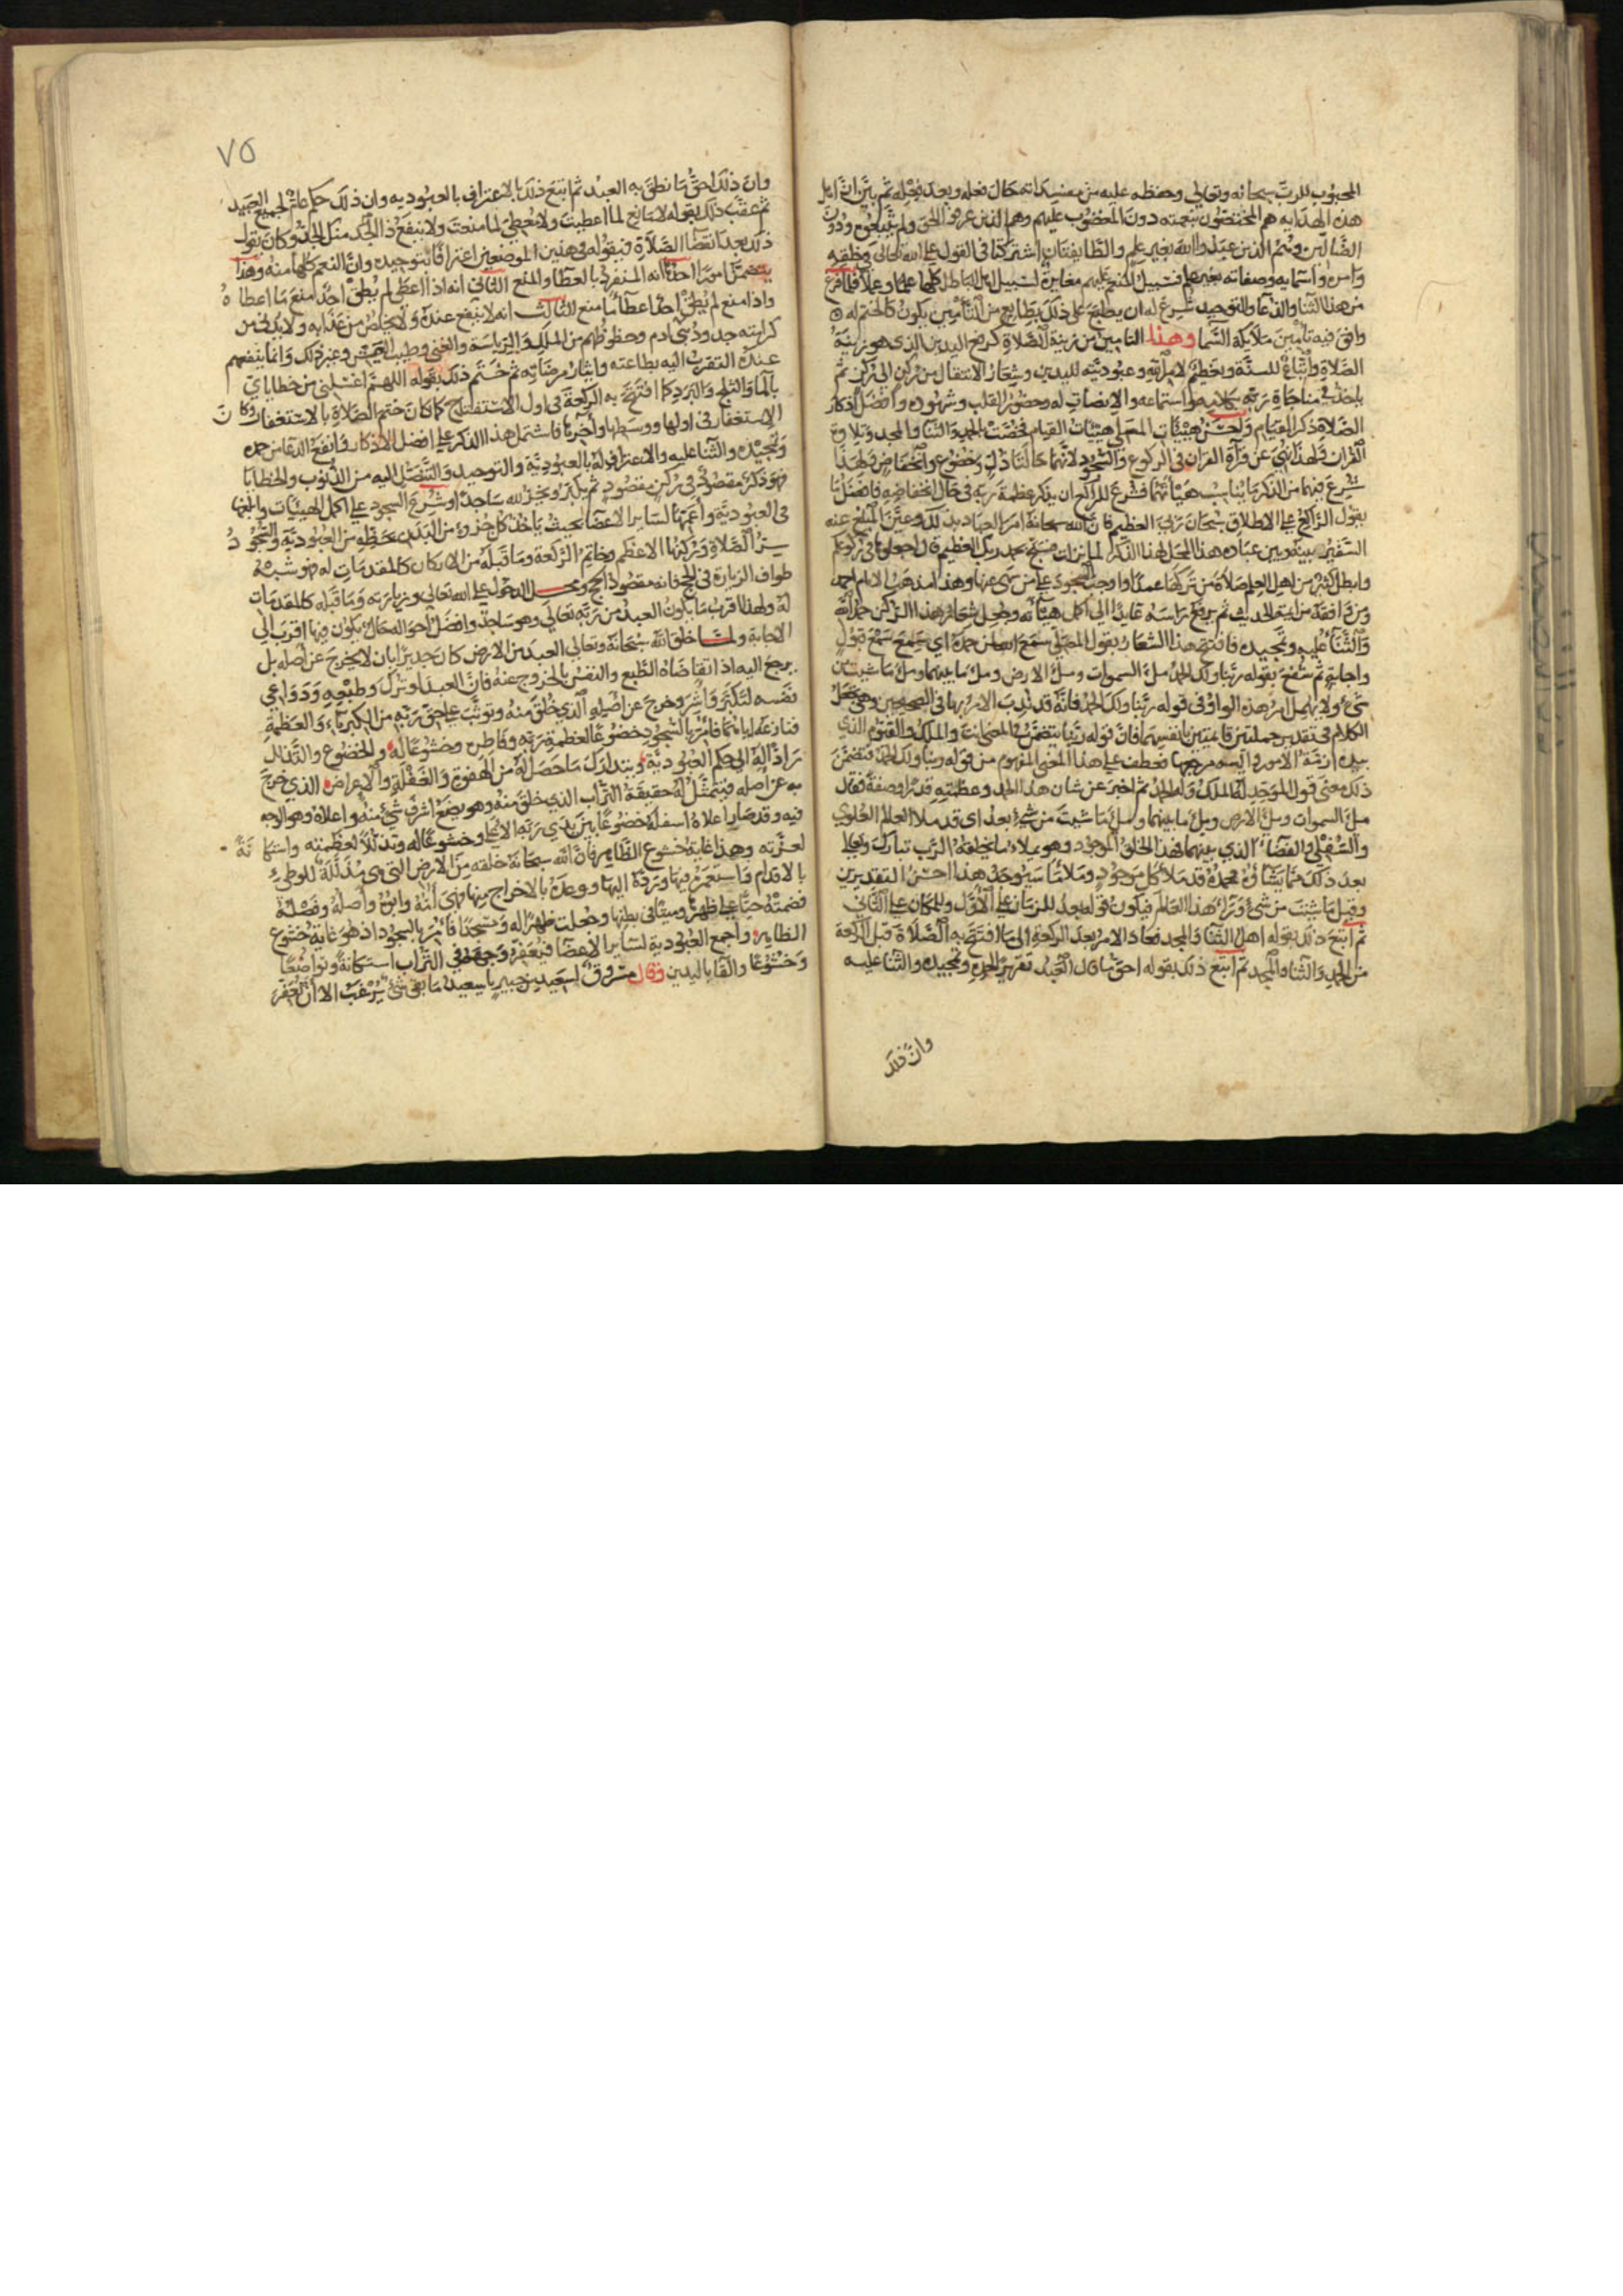 المحبوب للرب سبحانه وتعالى وحفظه عليه من مفسداته حال فعله وبعد فعله ثم بين ان اهل
هذه الهداية هم المختصون بنعمته دون المغضوب عليهم وهم الذين عرفوا الحق ولم يتبعوه ودون
الضالين وهم الذين عبدوا الله بغير علم والطائفتان اشتركتا فى القول على الله تعالى فى خلقه
وامره واسمايه وصفاته بغير علم فسبيل المنعم عليهم مغايرة لسبيل اهل الباطل كلها علما وعملا فلما فرغ
من هذا الثنا والدعا والتوحيد شرع له ان يطبع على ذلك بطابع من التامين يكون كالختم له
وافق فيه تامين ملايكة السما وهذا التامين من زينة الصلاة كرفع اليدين الذى هو زينة
الصلاة واتباع للسنة وتعظيم لامر الله وعبودية لليدين وشعار الانتقال من ركن الى ركن ثم
ياخذ فى مناجاة ربه بكلامه واستماعه والانصات له وحضور القلب وشهوده وافضل اذكار
الصلاة ذكر القيام واحسن هيئات المصلى هيئات القيام فخصت بالحمد والثنا والمجد وتلاوة
القران ولهذا نهى عن قرآة القران فى الركوع والسجود لانهما حالتا ذل وخضوع وانخفاض ولهذا
شرع فيهما من الذكر ما يناسب هيئاتهما فشرع للراكع ان يذكر عظمة ربه فى حال انخفاضه فافضل ما
يقول الراكع على الاطلاق سبحان ربى العظيم فان الله سبحانه امر العباد بذلك وعين المبلغ عنه
السفير بينه وبين عباده هذا المحل لهذا الذكر لما نزلت فسبح بحمد ربك العظيم قال اجعلوها فى ركوعكم
وابطل كثير من اهل العلم صلاة من تركها عمدا واوجب السجود على من سهى عنها وهذا مذهب الامام احمد
ومن وافقه من ايمة الحديث ثم يرفع راسه عايدا الى اكمل هيئاته وجعل شعار هذا الركن حمد الله
والثنآ عليه وتمجيده فافتتح هذا الشعار بقول المصلى سمع الله لمن حمده اى سمع سمع قبول
واجابة ثم شفع بقوله ربنا ولك الحمد ملء السموات وملء الارض وملء ما بينهما وملء ما شيت من
شىء ولا يهمل امر هذه الواو فى قوله ربنا ولك الحمد فانه قد ندب الامر بها فى الصحيحين وهى تجعل
الكلام فى تقدير جملتين قايمتين بانفسهما فان قوله ربنا يتضمن فى المعنى انت والملك والقيوم الذى
بيده ازمة الامور واليه مرجعها فعطف على هذا المعنى المفهوم من قوله ربنا ولك الحمد فتضمن
ذلك معنى قول الموحد له الملك وله الحمد ثم اخبر عن شان هذا الحمد وعظمته قدرا وصفة فقال
ملء السموات وملء الارض وملء ما بينهما وملء ما شيت من شىء بعد اى قد ملا العالم العلوى
والسفلى والفضاء الذى بينهما فهذا الخلق الموجود وهو يملا ما يخلقه الرب تبارك وتعالى
بعد ذلك مما يشاؤه فحمده قد ملا كل موجود وملا ما سيوجد فهذا احسن التقديرين
وقيل ما شيت من شىء ورآء هذا العالم فيكون قوله بعد للزمان على الاول وللمكان على الثانى
ثم اتبع ذلك بقوله اهل الثنا والمجد فعاد الامر بعد الركعة الى ما افتتح به الصلاة قبل الركعة
من الحمد والثنا والمجد ثم اتبع ذلك بقوله احق ما قال العبد تقرير لحمده وتمجيده والثنا عليه
وان ذلك
٧٥
وان ذلك احق ما نطق به العبد ثم اتبع ذلك بالاعتراف بالعبوديه وان ذلك حكم عام لجميع العبيد
ثم عقب ذلك بقوله لا مانع لما اعطيت ولا معطى لما منعت ولا ينفع ذا الجد منك الجد وكان يقول
ذلك بعد انقضا الصلاة فيقوله فى هذين الموضعين اعترافا بتوحيده وان النعم كلها منه وهذا
يتضمن امورا احدها انه المنفرد بالعطا والمنع الثانى انه اذا اعطى لم يطق احد منع ما اعطاه
واذا منع لم يطق احد اعطا ما منع الثالث انه لا ينفع عنده ولا يخلص من عذابه ولا يدنى من
كرامته جدود بنى ادم وحظوظهم من الملك والرياسة والغنى وطيب العيش وغير ذلك وانما ينفعهم
عنده التقرب اليه بطاعته وايثار مرضاته ثم ختم ذلك بقوله اللهم اغسلنى من خطاياى
بالما والثلج والبرد كما افتتح به الركعة فى اول الاستفتاح كما كان ختم الصلاة بالاستغفار وكان
الاستغفار فى اولها ووسطها واخرها فاشتمل هذا الذكر على افضل الاذكار وانفع الدعا من حمده
وتمجيده والثنا عليه والاعتراف له بالعبودية والتوحيد والتنصل اليه من الذنوب والخطايا
فهو ذكر مقصود فى ركن مقصود ثم يكبر ويخر لله ساجدا وشرع السجود على اكمل الهيئات وابلغها
فى العبودية واعمها لساير الاعضا بحيث ياخذ كل جزؤ من البدن بحظه من العبودية والسجود
سر الصلاة وركنها الاعظم وخاتم الركعة وما قبله من الاركان كالمقدمات له فهو شبه
طواف الزيارة فى الحج فانه مقصود الحج ومحل الدخول على الله تعالى وزيارته وما قبله كالمقدمات
له ولهذا اقرب ما يكون العبد من ربه تعالى وهو ساجد وافضل احواله حال يكون فيها اقرب الى
الاجابة ولما خلق الله سبحانه وتعالى العبد من الارض كان جديرا بان لا يخرج عن اصله بل
يرجع اليه اذا تقاضاه الطبع والنفس بالخروج عنه فان العبد لو ترك وطبعه ودواعى
نفسه لتكبر واشر وخرج عن اصله الذى خلق منه وتوثب على حق ربه من الكبرياء والعظمة
فنازعه اياهما فامر بالسجود خضوعا لعظمة ربه وفاطره وخشوعا له والخضوع والتذلل
رادا له الى حكم العبودية ويتدارك ما حصل له من الهفوة والغفلة والاعراض الذى خرج
به عن اصله فيتمثل له حقيقة التراب الذى خلق منه وهو يضع اشرف شىء منه واعلاه وهو الوجه
فيه وقد صار اعلاه اسفله خضوعا بين يدى ربه الاعلى وخشوعا له وتذللا لعظمته واستكانة
لعزته وهذا غاية خشوع الظاهر فان الله سبحانه خلقه من الارض التى هى مذللة للوطئ
بالاقدام فاستعمره فيها ورده اليها ووعده بالاخراج منها فهى امه وابوه واصله وفصله
فضمته حيا على ظهرها وميتا فى بطنها وجعلت طهرا له ومسجدا فامر بالسجود اذ هو غاية خشوع
الظاهر واجمع العبودية لساير الاعضا فيعفر وجهه فى التراب استكانة وتواضعا
وخشوعا والقا باليدين وقال مسروق لسعيد بن جبير يا سعيد ما بقى شىء يرغب الا ان نعفر